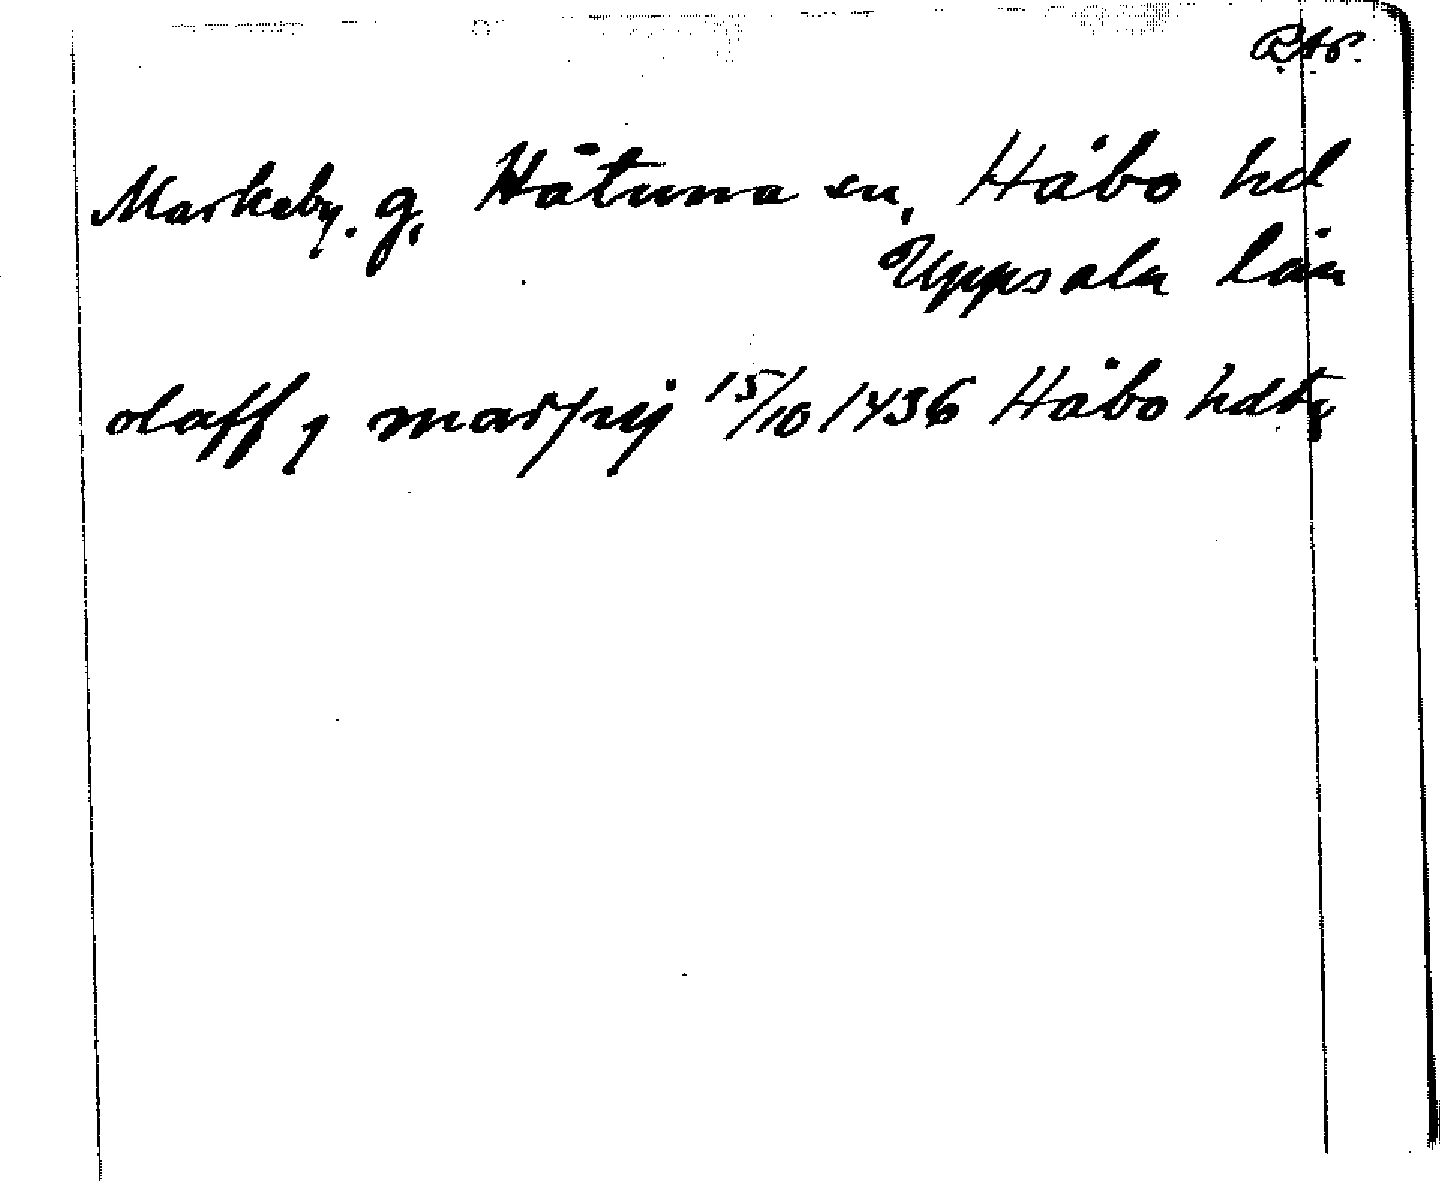 Markeby. g, Håtuna sn, Håbo hd
Uppsala län
olaff j 15/10 1436 Håbo hdtg